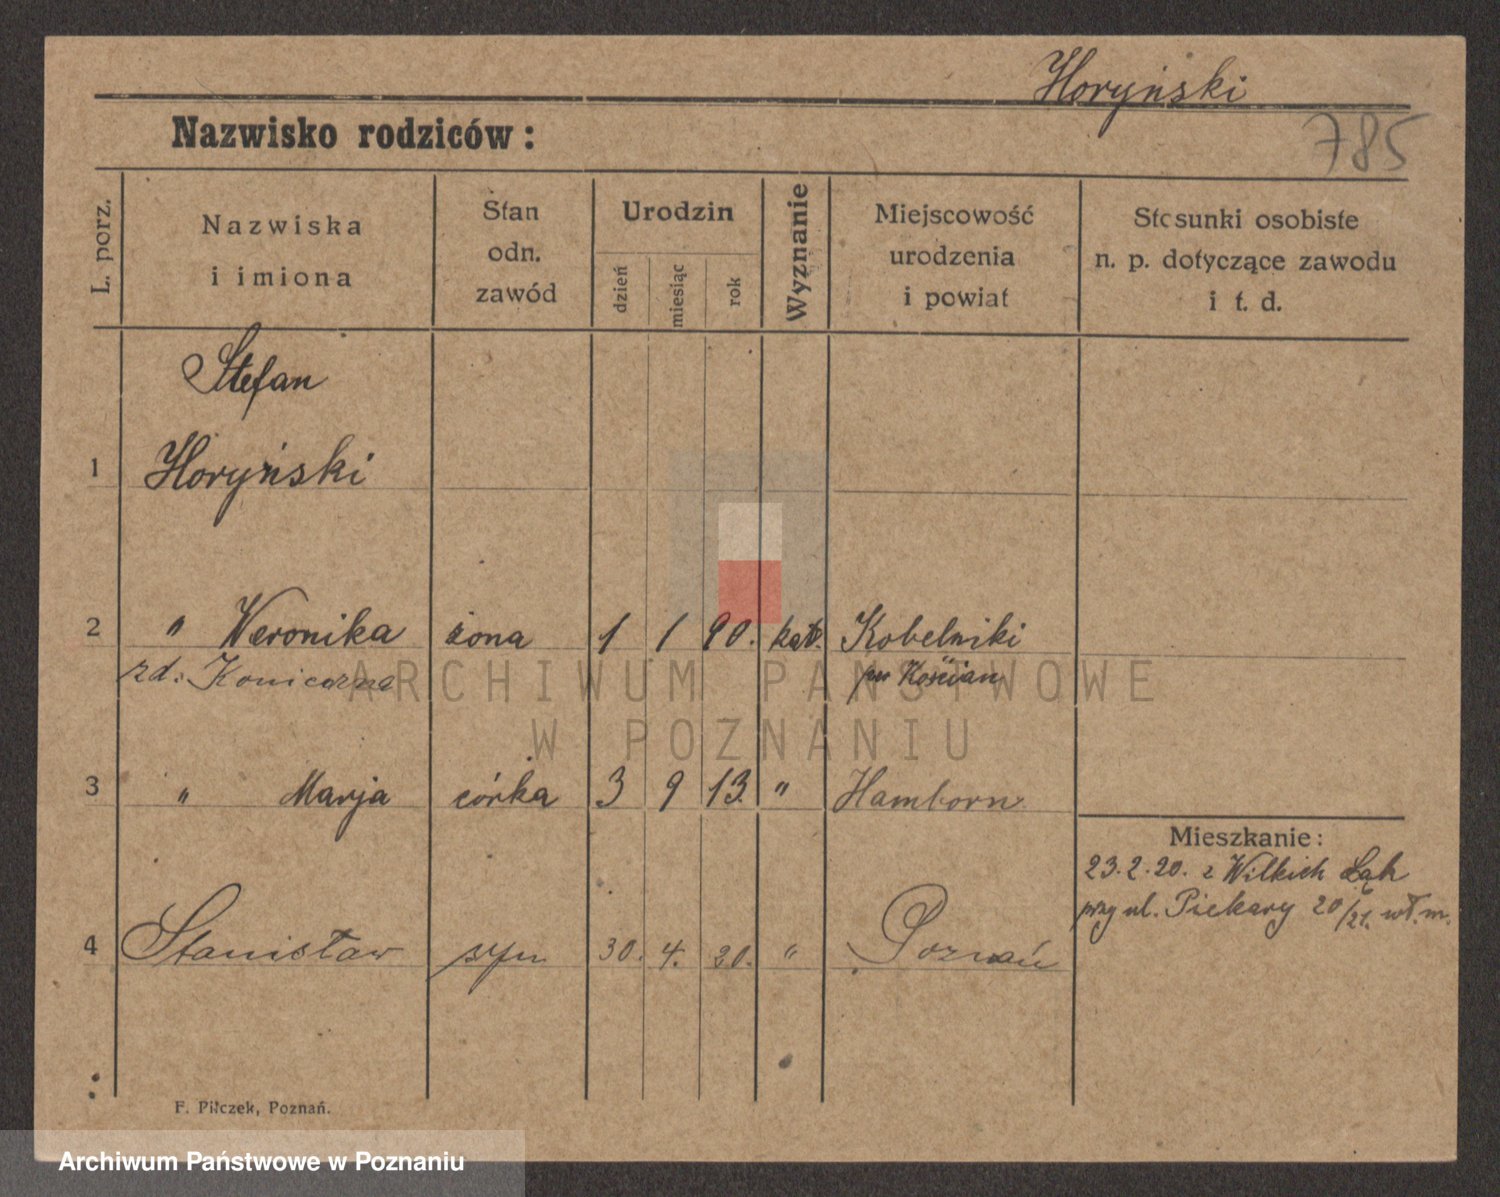 Horyński
785
Nazwisko rodziców:
L. porz.
Nazwiska
i imiona
Stan
odn.
zawód
Urodzin
dzień
miesiąc
rok
Wyznanie
Miejscowość
urodzenia
i powiat
Stosunki osobiste
n. p. dotyczące zawodu
i t. d.
Stefan
1 Horyński
2 " Weronika żona 1 1 90. kat. Kobelniki
zd: Konieczna Kościan
3 " Marja córka 3 9 13. " Hamborn
Mieszkanie:
23.2.20. z Wilkich Łąk
przy ul. Piekary 20/21. wł. m.
4 Stanisław syn 30. 4. 20. " Poznań
F. Pilczek, Poznań.
ARCHIWUM PAŃSTWOWE
W POZNANIU
Archiwum Państwowe w Poznaniu